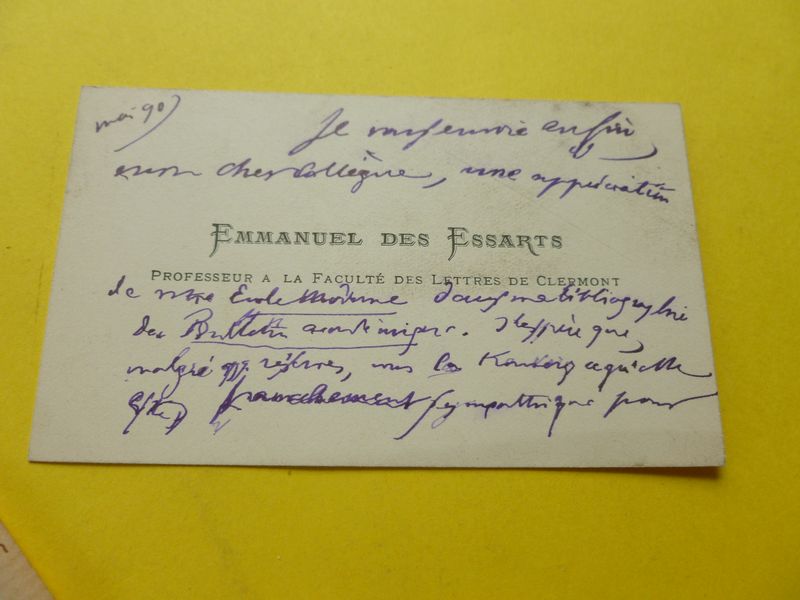 mai 90
Je vous envoie enfin,
mon cher Collègue, une appréciation
EMMANUEL DES ESSARTS
PROFESSEUR A LA FACULTÉ DES LETTRES DE CLERMONT
de votre École Moderne dans ma bibliographie
du Bulletin académique. J'espère que,
malgré qq. réserves, vous la
franchement sympathique pour